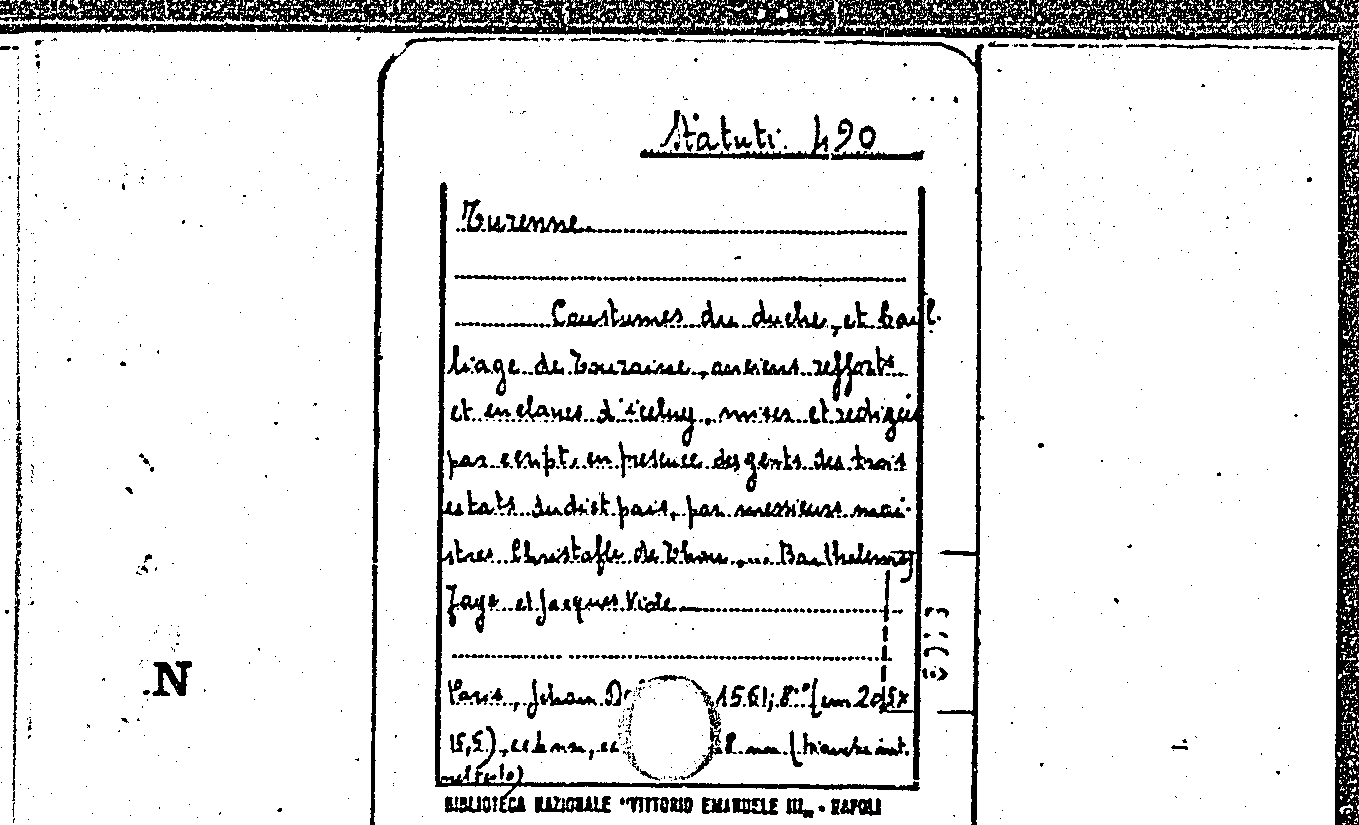 Statuti. 490
Turenne
Coustumes du duche, et bail-
liage de Touraine, anciens ressorts
et enclaves d'icelluy, mises et redigées
par escript, en presence des gents des trois
estats dudict pais, par messieurs mai-
stres Christofle de Thou, ... Barthelemy
Faye et Jacques Viole
N
Paris, Jehan 1561; 8° (cm
15,5)
BIBLIOTECA NAZIONALE "VITTORIO EMANUELE III„ - NAPOLI